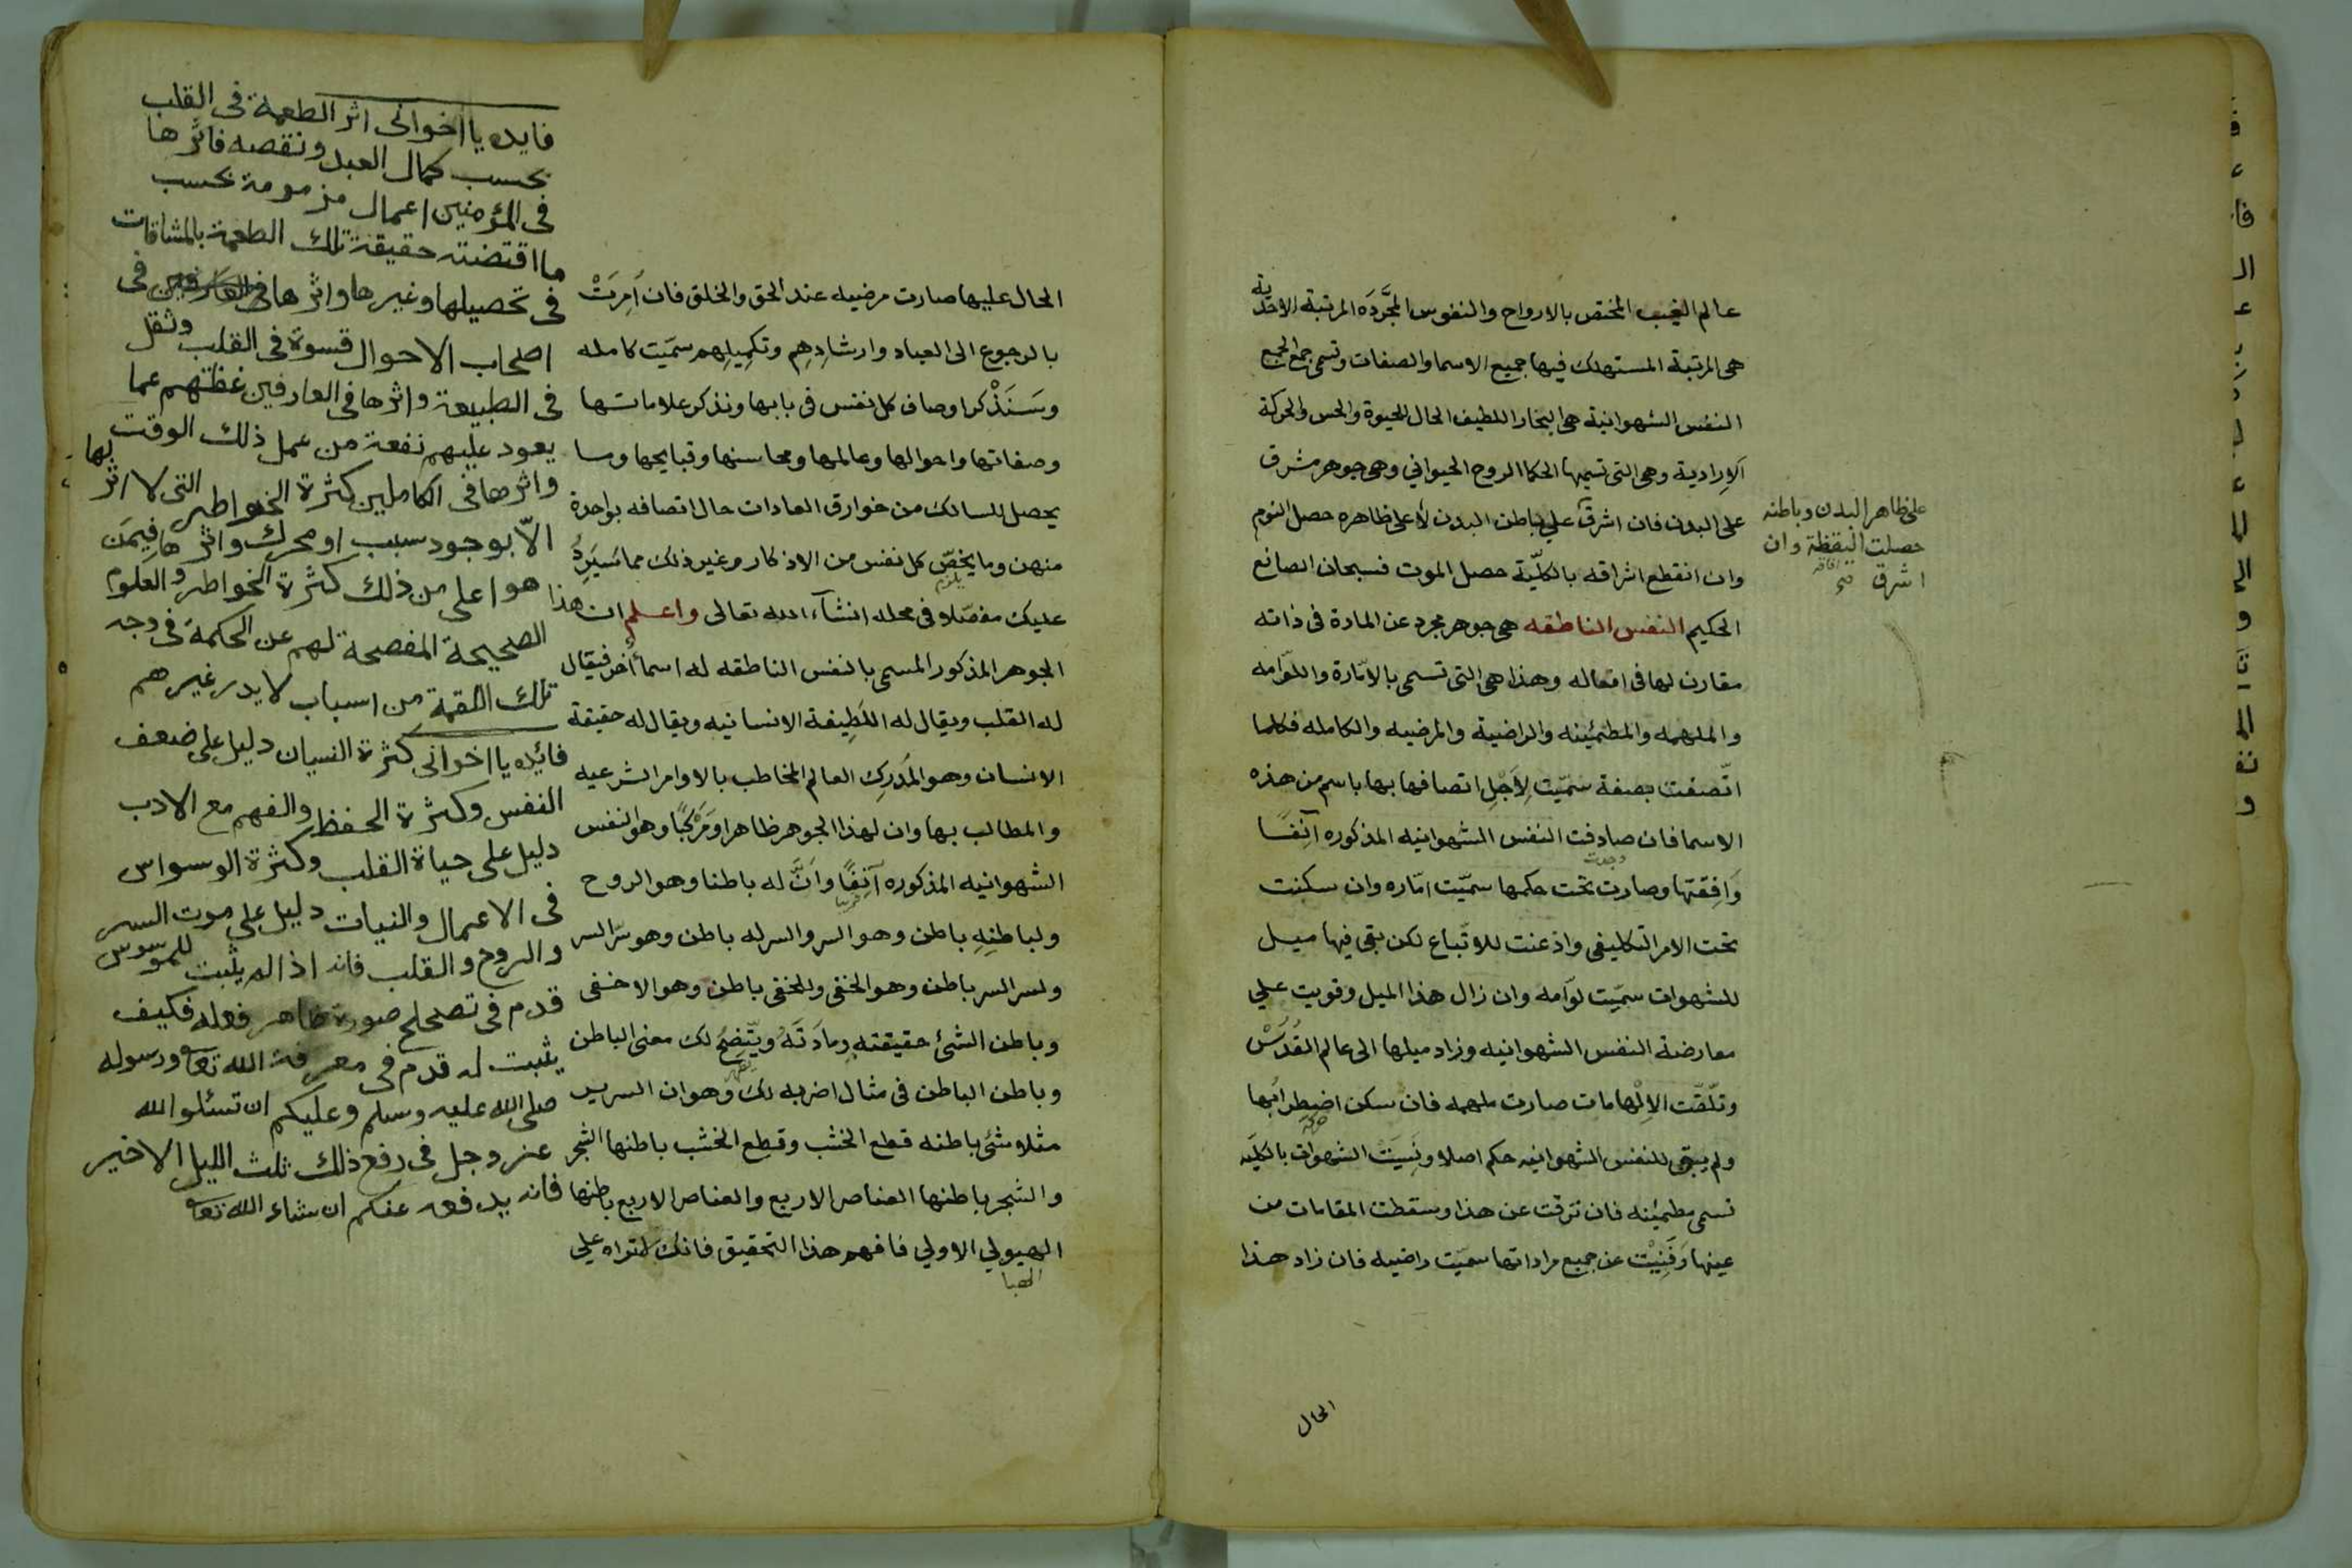 عالم الغيب المختص بالارواح والنفوس المجرَّدَه المرتبة الاحدية
هى المرتبة المستهلك فيها جميع الاسما والصفات وتسمى جمع الجمع
النفس الشهوانية هى البخار اللطيف الحال للحيوة والحس والحركة
الاِرادية وهى التى تسميها الحكما الروح الحيواني وهى جوهر مشرق
على البدن فان اشرق علي باطن البدن لأعلى ظاهره حصل النوم
وان انقطع اشراقه بالكليّة حصل الموت فسبحان الصانع
الحكيم النفس الناطقه هى جوهر مجرد عن المادة فى ذاته
مقارن لها فى افعاله وهذا هى التى تسمى بالامّارة واللوّامه
والملهمه والمطمئينه والراضية والمرضيه والكامله فكلما
اتّصفت بصفة سمّيت لاَجْلِ اتصافها بها باسم من هذه
الاسما فان صادفت النفس الشهوانيه المذكوره آنِفًا
وَافِقتها وصارت تحت حكمها سمّيت امّاره وان سكنت
تحت الامر التكليفى واذعنت للاتّباع لكن بقى فيها ميل
للشهوات سمّيت لوّامه وان زال هذا الميل وقويت علي
معارضة النفس الشهوانيه وزاد ميلها الى عالم القُدَسْ
وتلّقت الاِلْهامات صارت ملهمه فان سكن اضطرابها
ولم يبقى للنفس الشهوانيه حكم اصلا ونَسِيَتْ الشهوات بالكليّه
تسمى مطمئينه فان ترقت عن هذا وسقطت المقامات من
عينها وَفَنِيْت عن جميع مراداتها سمّيت راضيه فان زاد هذا
الحال
على ظاهر البدن وباطنه
حصلت اليقظة وان
اشرق صح
الحال عليها صارت مرضيه عند الحق والخلق فان اُمِرَتْ
بالرجوع الى العباد وارشادِهِم وتكمِيلِهم سمّيت كامله
وسَنَذْكر اوصاف كل نفس فى بابها ونذكر علاماتها
وصفاتها واحوالها وعالمها ومحاسنها وقبايحها وما
يحصل للسالك من خوارق العادات حال اتصافه بواحدة
منهن وما يخصّ كل نفس من الاذكار وغير ذلك مما سَيَرِدُ
عليك مفصّلا فى محله انشآء الله تعالى واعلم ان هذا
الجوهر المذكور المسمى بالنفس الناطقه له اسماً أخر فيقال
له القلب ويقال له اللَطِيفة الانسانيه ويقال له حقيقة
الانسان وهو المُدَرِك العالم المخاطب بالاوامر الشرعيه
والمطالب بها وان لهذا الجوهر ظاهرا وَمَرْكَبًا وهو النفس
الشهوانيه المذكوره آنِفًا وَانَّ له باطنا وهو الروح
ولباطنِهِ باطن وهو السر والسر له باطن وهو سرّ السر
ولسر السر باطن وهو الخفى وللخفى باطن وهو الاخفى
وباطن الشئ حقيقته ومادَتَهُ ويتّضِحُ لك معنى الباطن
وباطن الباطن فى مثال اضربه لك وهو ان السرير
مثلا شئ باطنه قطع الخشب وقطع الخشب باطنها الشجر
والشجر باطنها العناصر الاربع والعناصر الاربع باطنها
الهيولي الاولي فافهم هذا التحقيق فانك لا تراه علي
الهبا
فايده يا اخوانى اثر الطعمة فى القلب
بحسب كمال العبد ونقصه فاثرها
فى المؤمنين اعمال مزمومة بحسب
ما اقتضته حقيقة تلك الطعمة بالمشاقات
فى تحصيلها وغيرها واثرها فى
اصحاب الاحوال قسوة فى القلب وثقل
فى الطبيعة واثرها فى العارفين غفلتهم عما
يعود عليهم نفعة من عمل ذلك الوقت
واثرها فى الكاملين كثرة الخواطر التى لا اثر لها
الاّ بوجود سبب او محرك واثرها فيمَن
هو اعلى من ذلك كثرة الخواطر والعلوم
الصحيحة المفصحة لهم عن الحكمة فى وجه
تلك اللقمة من اسباب لا يدر غيرهم
فائده يا اخوانى كثرة النسيان دليل على ضعف
النفس وكثرة الحفظ والفهم مع الادب
دليل على حياة القلب وكثرة الوسواس
فى الاعمال والنيات دليل على موت السر
والروح والقلب فانه اذا لم يثبت للموسوس
قدم فى تصحلح صورة ظاهر فعله فكيف
يثبت له قدم فى معرفة الله تعا ورسوله
صلى الله عليه وسلم وعليكم ان تسئلوا الله
عز وجل فى رفع ذلك ثلث الليل الاخير
فانه يدفعه عنكم ان شاء الله تعا